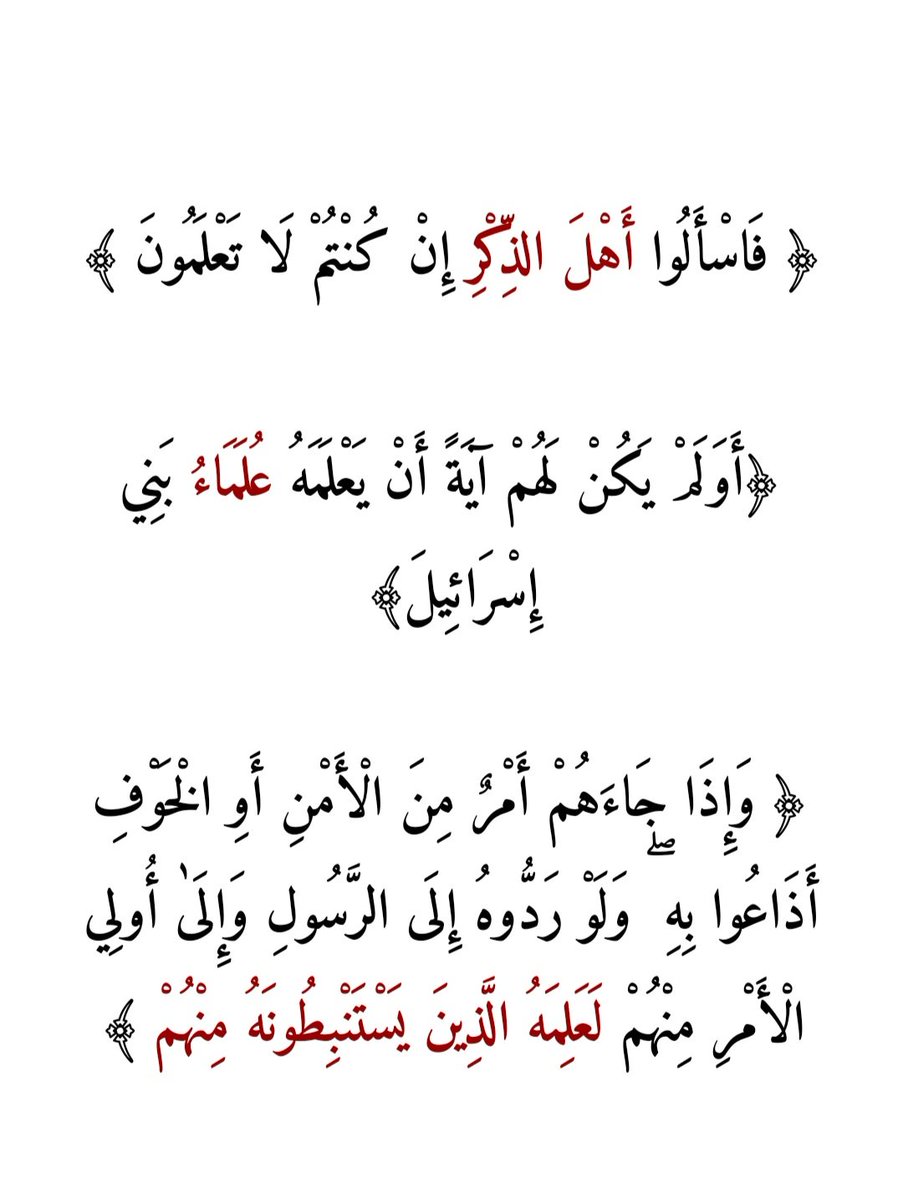 ﴿ فَاسْأَلُوا أَهْلَ الذِّكْرِ إِنْ كُنْتُمْ لَا تَعْلَمُونَ ﴾
﴿أَوَلَمْ يَكُنْ لَهُمْ آيَةً أَنْ يَعْلَمَهُ عُلَمَاءُ بَنِي
إِسْرَائِيلَ﴾
﴿ وَإِذَا جَاءَهُمْ أَمْرٌ مِنَ الْأَمْنِ أَوِ الْخَوْفِ
أَذَاعُوا بِهِ ۖ وَلَوْ رَدُّوهُ إِلَى الرَّسُولِ وَإِلَىٰ أُولِي
الْأَمْرِ مِنْهُمْ لَعَلِمَهُ الَّذِينَ يَسْتَنْبِطُونَهُ مِنْهُمْ ﴾